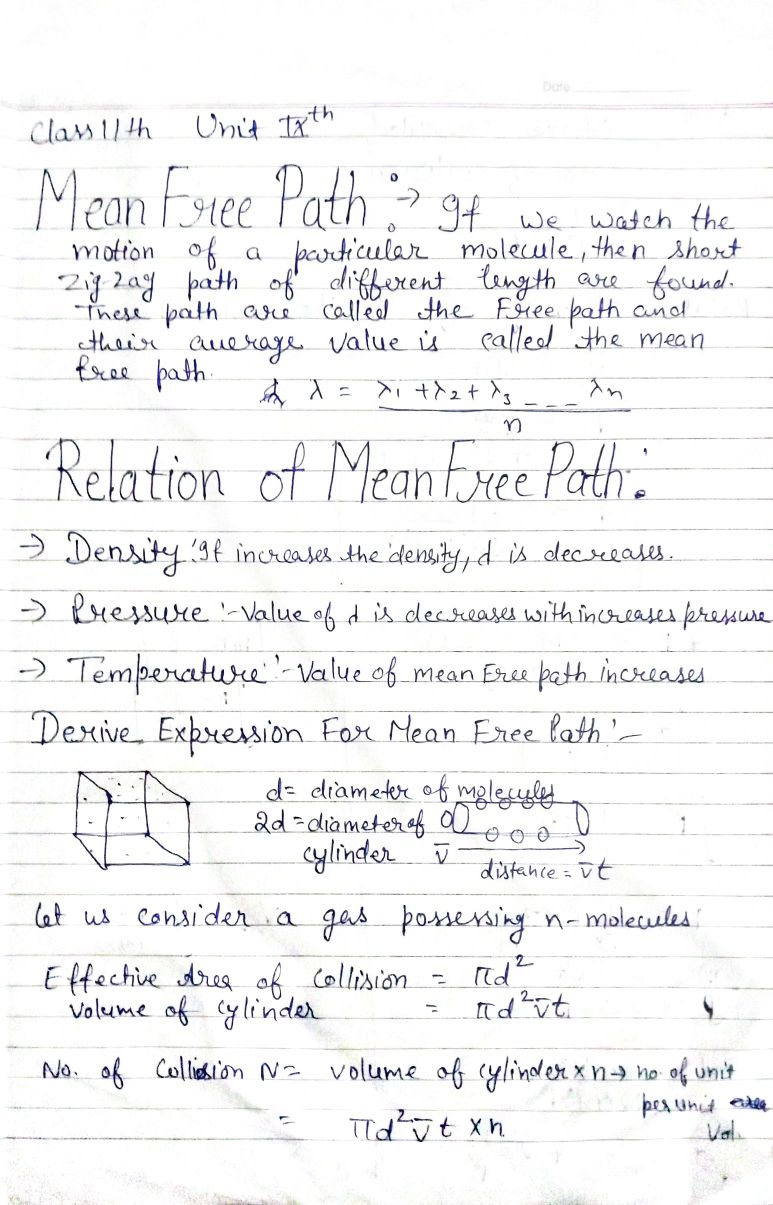 Date
Class 11th Unit IXth
Mean Free Path :→ If we watch the
motion of a particular molecule, then short
zig zag path of different length are found.
These path are called the Free path and
their average value is called the mean
free path.
λ = λ1 + λ2 + λ3 _ _ _ λn
n
Relation of Mean Free Path :
→ Density :- If increases the density, λ is decreases.
→ Pressure :- Value of λ is decreases with increases pressure
→ Temperature :- Value of mean Free path increases
Derive Expression For Mean Free Path :-
d = diameter of molecules
2d = diameter of
cylinder v̅
distance = v̅t
Let us consider a gas possessing n-molecules
Effective Area of Collision = πd²
Volume of cylinder = πd²v̅t
No. of Collision N = volume of cylinder x n → no. of unit
per unit
Vol.
= πd²v̅t x n